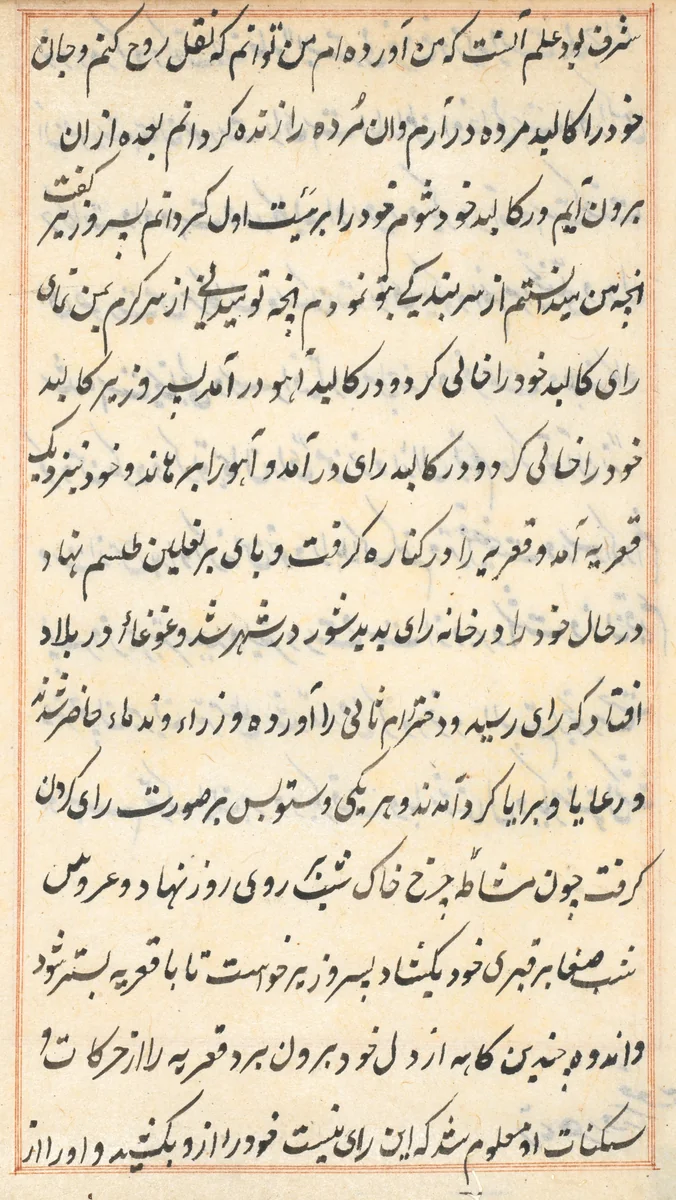 شرف بود علم آنست که من آورده ام من توانم که نقل روح کنم و جان
خود را کالبد مرده در آرم و ان مرده را زنده کردانم بعده از ان
برون آیم در کالبد خود شوم خود را بر هیئت اول کردانم پسر وزیر کفت
انچه من میدانستم از سر بندیکی بتو نمودم انچه تو میدانی از سر کرم بمن نمای
رای کالبد خود را خالی کرد و در کالبد آهو در آمد پسر وزیر کالبد
خود را خالی کرد و در کالبد رای در آمد و آهو را برماند و خود نیز دیک
قمریه آمد و قمریه را در کناره کرفت و پای بر نعلین طلسم نهاد
در حال خود را در خانه رای بدید شور در شهر شد و غوغاء در بلاد
افتاد که رای رسید و دختر ام ثانی را آورده وزراء و ندماء حاضر شدند
و رعایا و برایا کرد آمدند و هر یکی دستوبس بر صورت رای کردن
کرفت چون مشاطه چرخ خاک شب بر روی روز نهاد و عروس
شب صفا بر قبری خود بکشاد پسر وزیر خواست تا با قمریه بستر شود
و اندوه چندین کاهه از دل خود برون برد قمریه را از حرکات و
سکنات او معلوم شد که این رای نیست خود را ازو بکشید و او را از